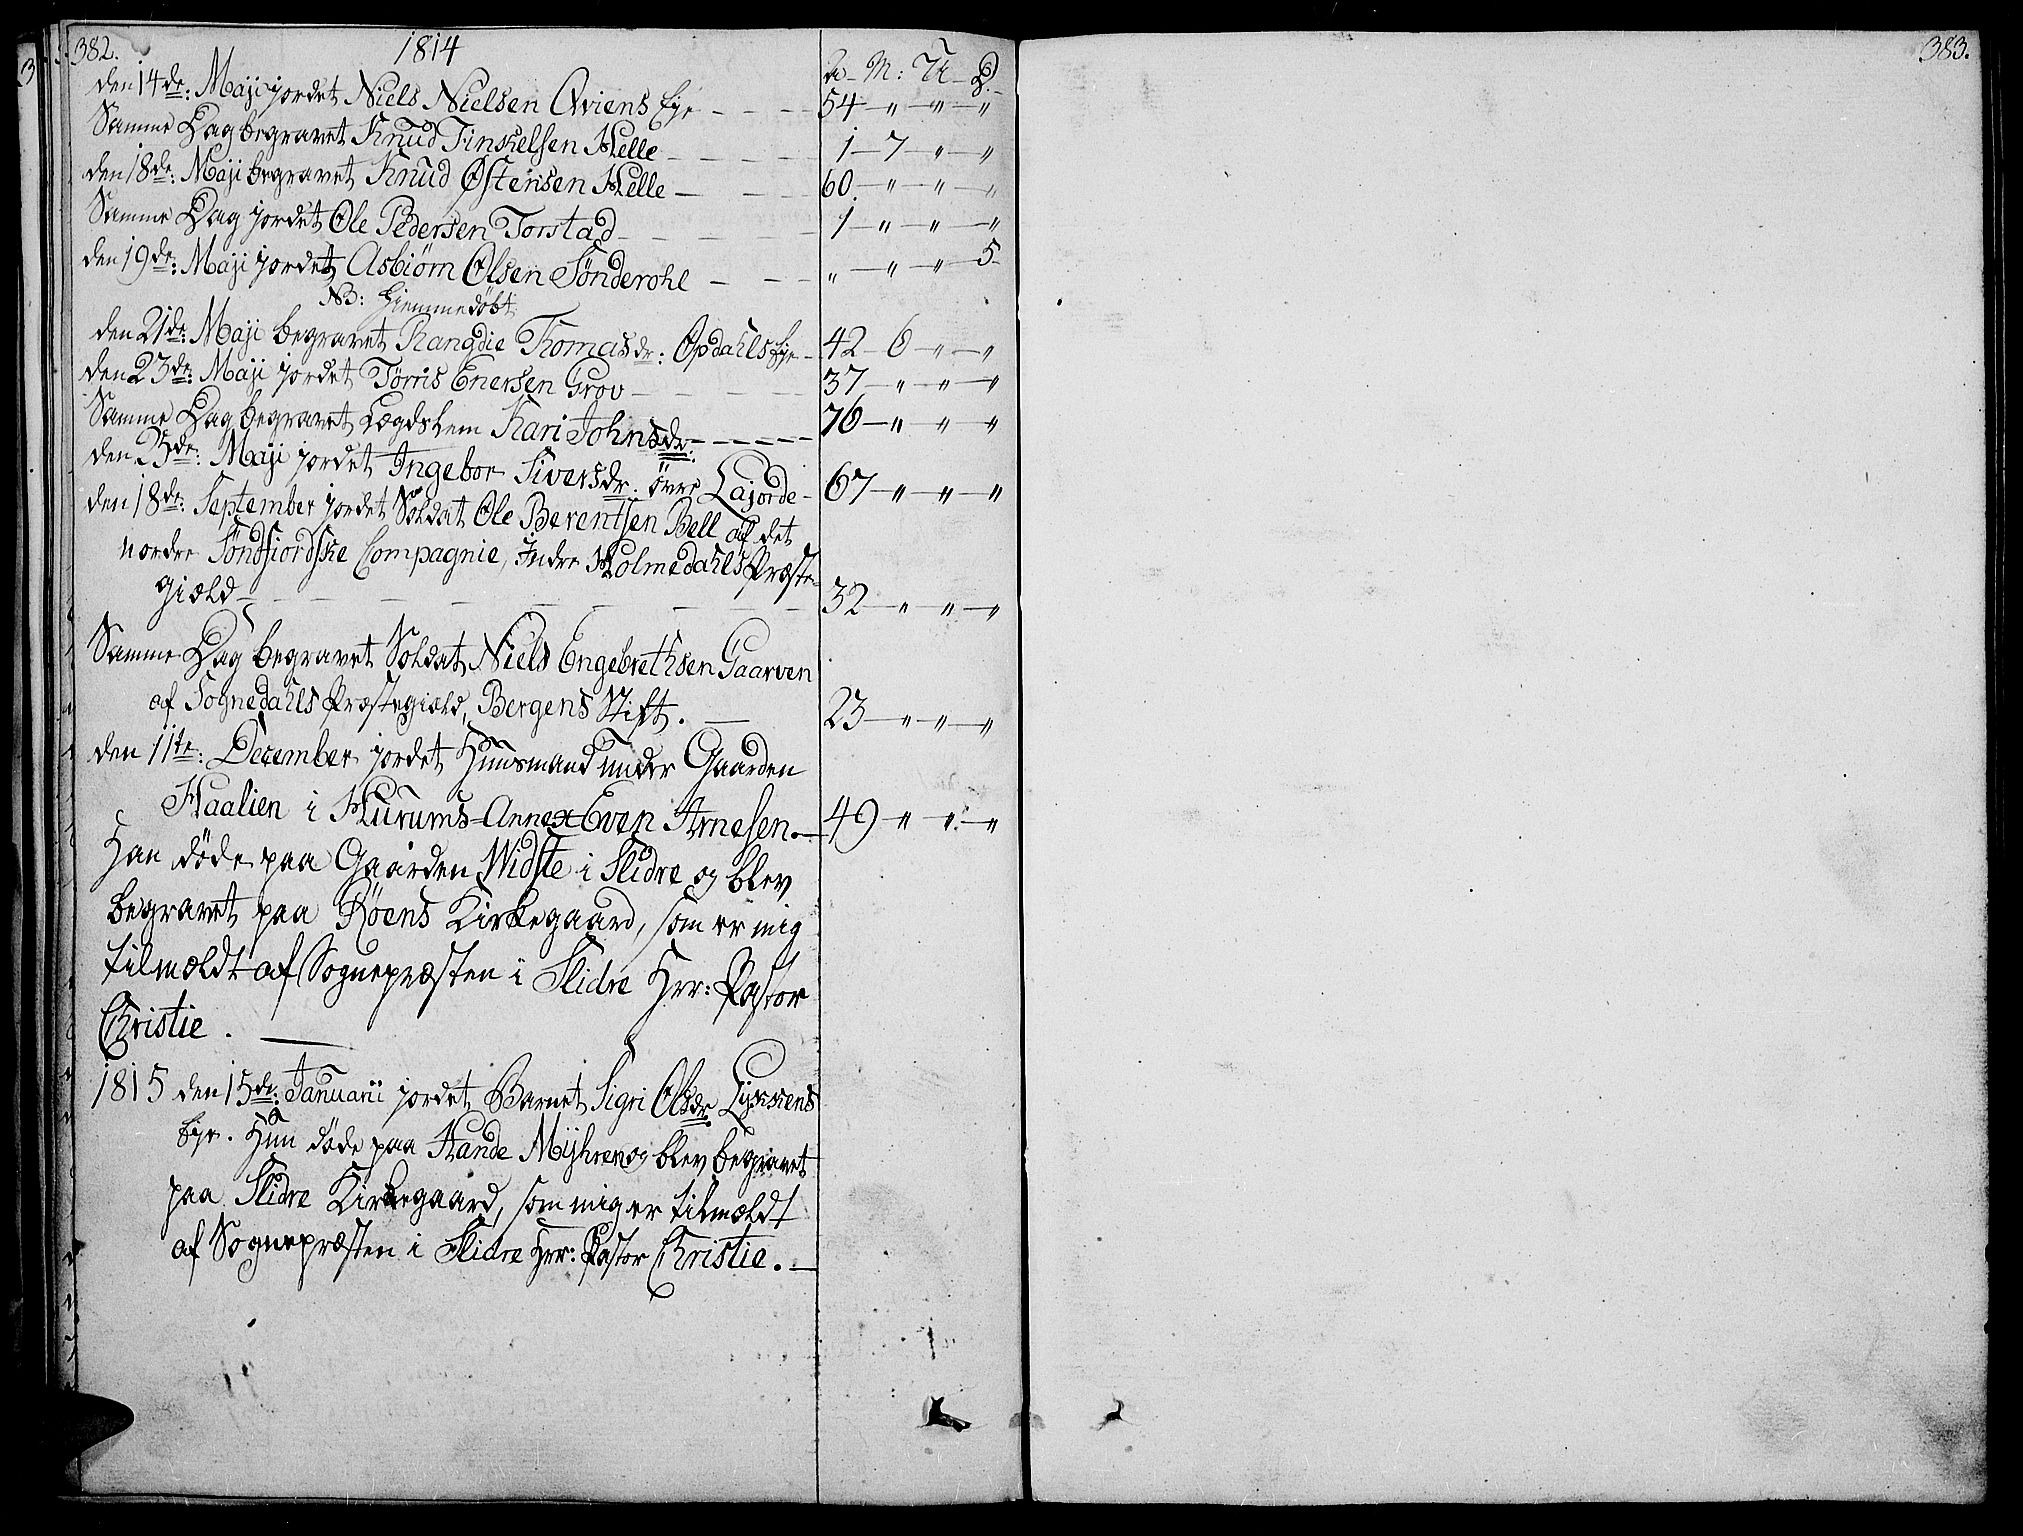 382.
1814
A – M: – U – D.
den 14de: Maji jordet Niels Nielsen Qviens Eje – – – 54 – " – " – "
Samme Dag begravet Knud Tinkelsen Helle – – – – 1 – 7 – " – "
den 18de: Maji begravet Knud Østensen Helle – – – 60 – " – " – "
Samme Dag jordet Ole Pedersen Torstad – – – – 1 – " – " – "
den 19de: Maji jordet Asbiørn Olsen Sønderohl – – – " – " – " 5 –
NB: Hjemmedøbt
den 21de: Maji begravet Rangdie Thomasdr: Opdahls Eje – 42 – 6 – " – "
den 23de: Maji jordet Tørris Enersen Grov – – – – 37 – " – " – "
Samme Dag begravet Lægdslem Kari Johnsdr: – – – – 76 – " – " – "
den 25de: Maji jordet Ingebor Siversdr: øvre Lajorde – 67 – " – " – "
den 18de: September jordet Soldat Ole Berentsen Bell af det
nordre Søndfiordske Compagnie, Indre Holmedahls Præste-
giæld – – – – – – – – 32 – " – " – "
Samme Dag begravet Soldat Niels Engebrethsen Gaarven
af Sognedahls Præstegiæld, Bergens Stift. – 23 – " – " – "
den 11te: December jordet Huusmand under Gaarden
Haalien i Hurums-Annex Even Arnesen. – 49 – " – " – "
Han døde paa Gaarden Widste i Slidre og blev
begravet paa Røens Kirkegaard, som er mig
tilmældt af Sognepræsten i Slidre Hrr: Pastor
Christie. –
1815 den 15de: Januarii jordet Barnet Sigri Olsdr Lykkens
Eje. Hun døde paa Hande Mijhren og blev begravet
paa Slidre Kirkegaard, som mig er tilmældt
af Sognepræsten i Slidre Hrr: Pastor Christie. –
383.